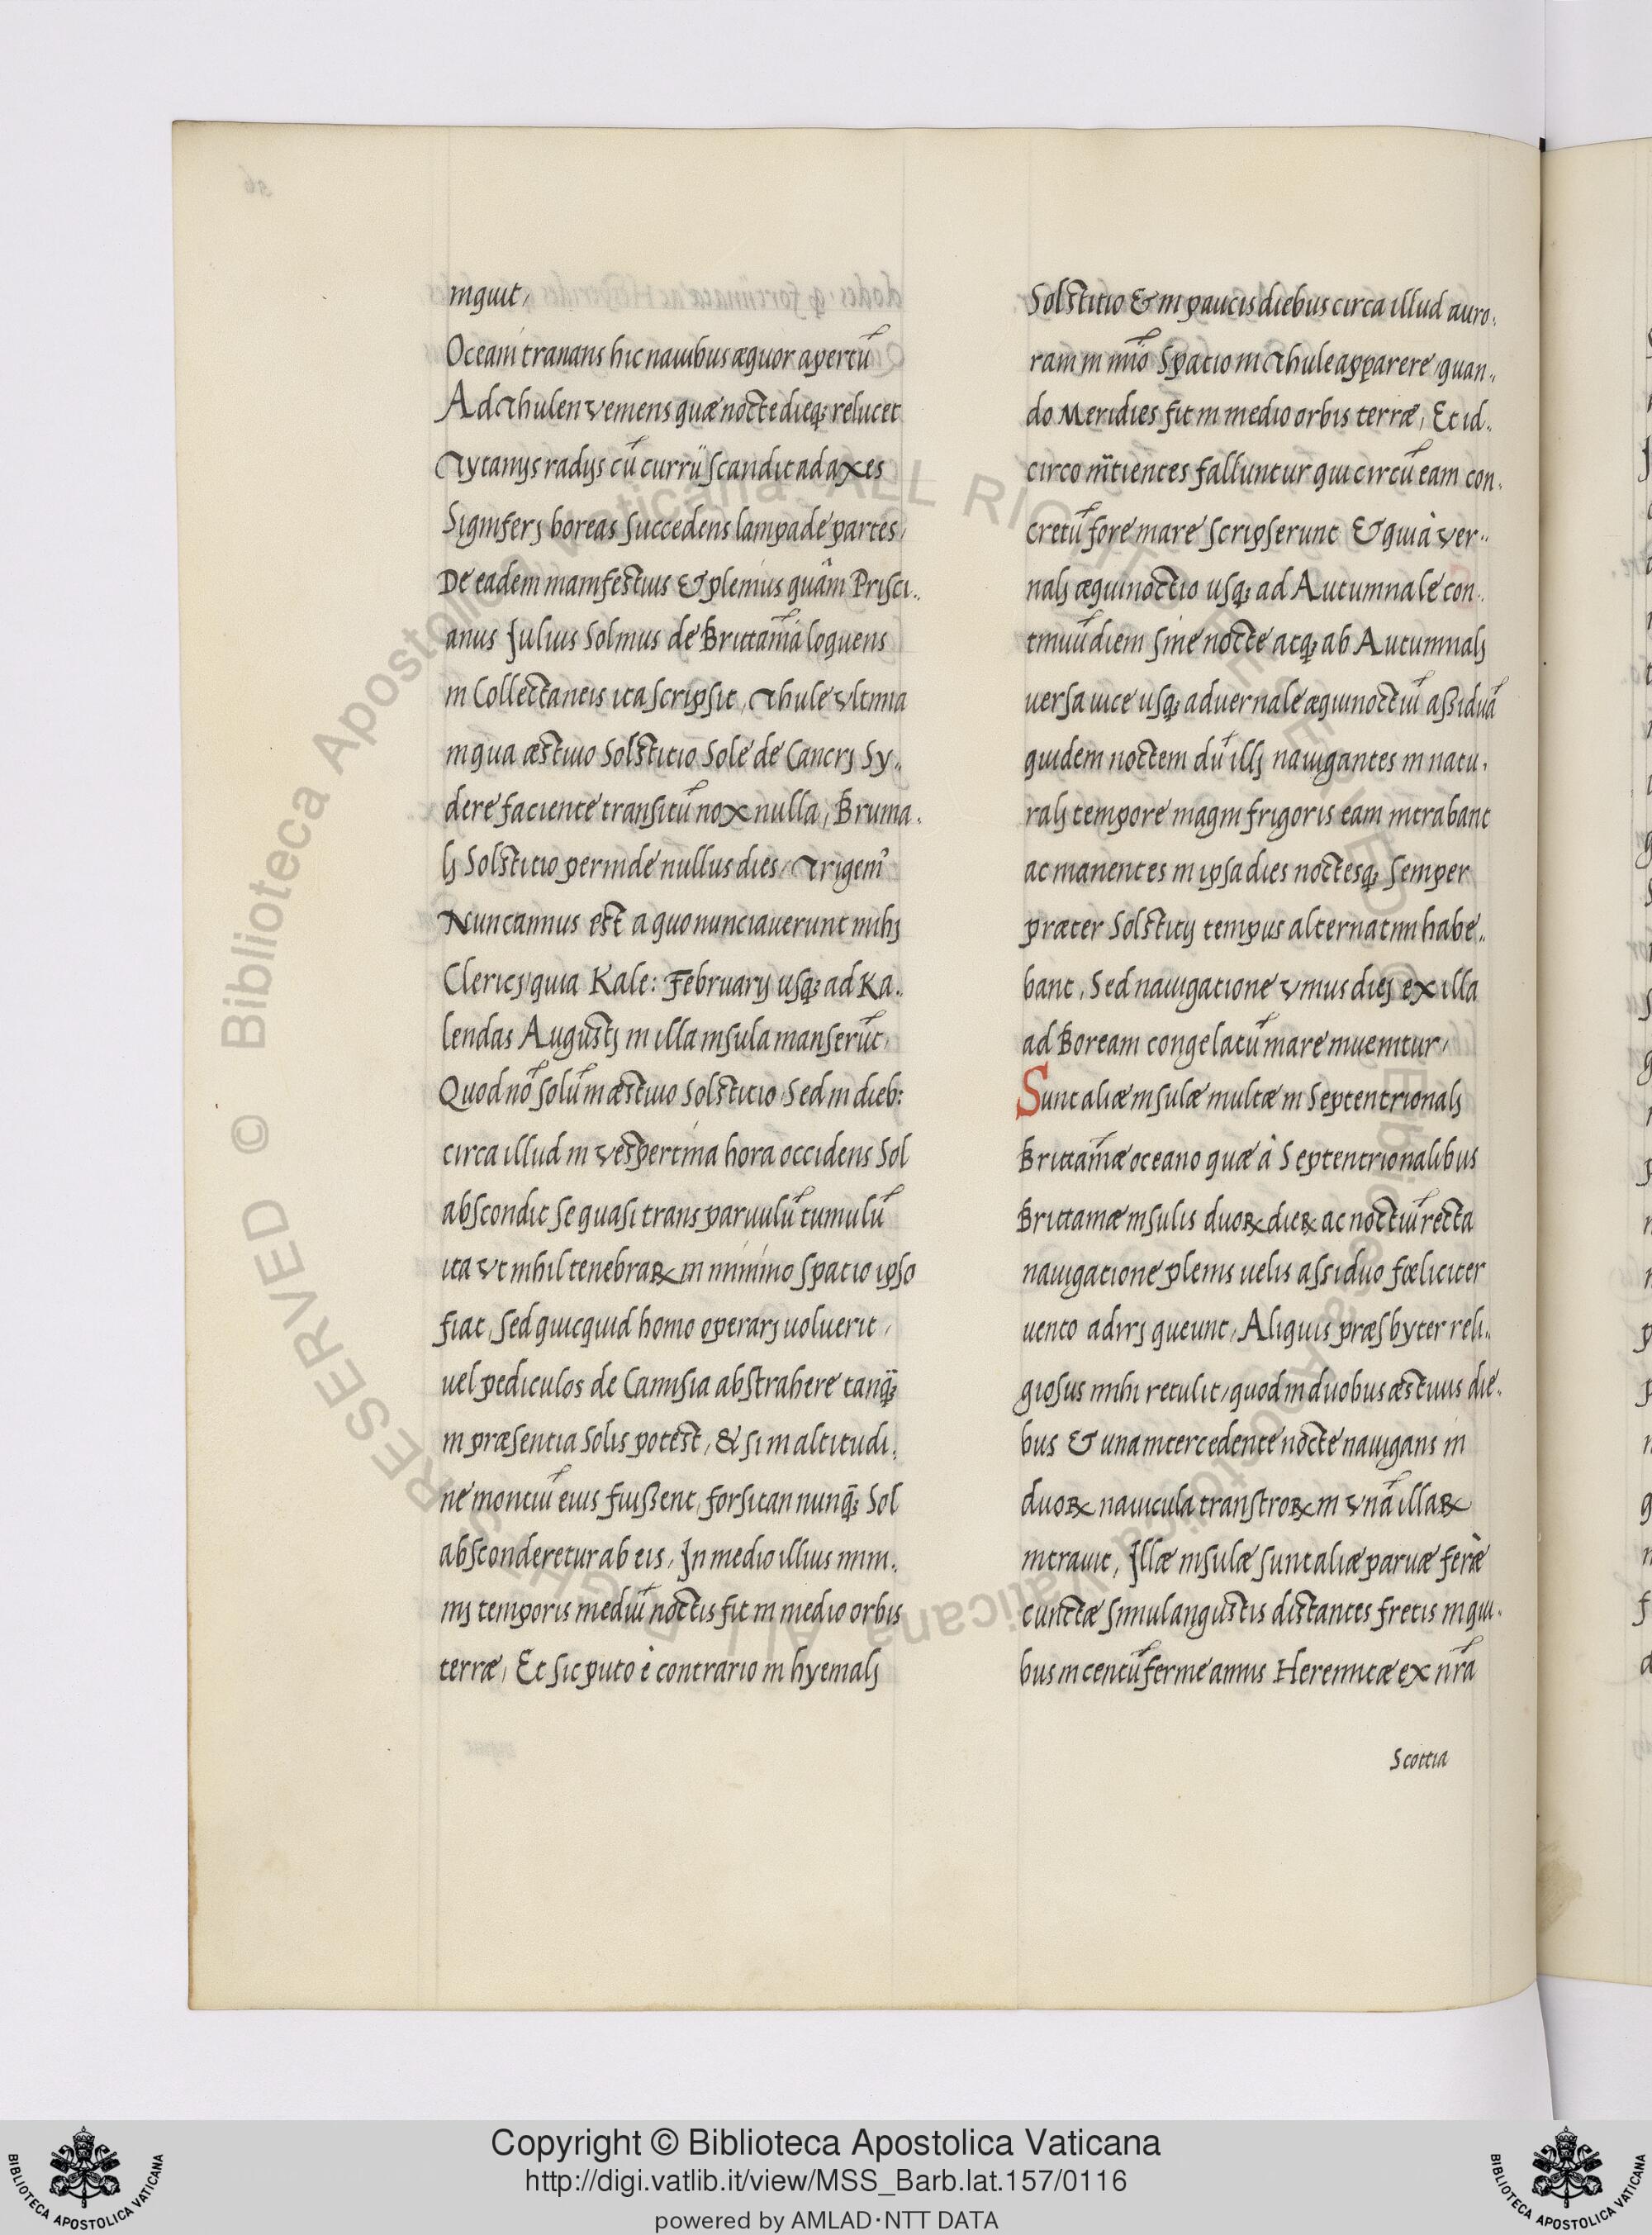 inquit,
Oceani tranans hic nauibus æquor apertū
Ad Thulen veniens quæ nocte dieq; relucet
Tytanys radys cū currū scandit ad axes
Signiferj boreas succedens lampade partes,
De eadem manifestius & plenius quâm Prisci..
anus Julius Solinus de Brittania loquens
in Collectaneis ita scripsit, Thule vltima
in qua æstiuo Solstitio Sole de Cancrj Sy..
dere faciente transitū nox nulla, Bruma.
lj Solstitio perinde nullus dies, Trigem'
Nunc annus est a quo nunciauerunt mihj
Clericj quia Kale: February usq; ad Ka..
lendas Augustj in illa insula manserūt,
Quod nō solū in æstiuo Solstitio Sed in dieb:
circa illud in vespertina hora occidens Sol
abscondit se quasi trans paruulū tumulū
ita vt nihil tenebraꝝ in minimo spatio ipso
fiat, sed quicquid homo operarj uoluerit,
uel pediculos de Camisia abstrahere tanq̃;
in præsentia Solis potest, & si in altitudi.
ne montiū eius fuissent, forsitan nunq̃; Sol
absconderetur ab eis, In medio illius mini.
mj temporis mediū noctis fit in medio orbis
terræ, Et sic puto è contrario in hyemalj
Solstitio & in paucis diebus circa illud auro.
ram in mīo spatio in Thule apparere quan..
do Meridies fit in medio orbis terræ, Et id..
circo m̄tientes falluntur qui circū eam con.
cretū fore mare scripserunt & quia à ver..
nalj æquinoctio usq; ad Autumnale con..
tinuū diem sine nocte atq; ab Autumnalj
uersa uice usq; ad uernale æquinoctiū assiduā
quidem noctem dū illj nauigantes in natu.
ralj tempore magni frigoris eam intrabant
ac manentes in ipsa dies noctesq; semper
præter Solstity tempus alternatim habe..
bant, Sed nauigatione vnius diej ex illa
ad Boream congelatū mare inuenitur,
Sunt aliæ insulæ multæ in Septentrionalj
Brittaniæ oceano quæ à Septentrionalibus
Brittaniæ insulis duoꝝ dieꝝ ac noctiū recta
nauigatione plenis uelis assiduo fœliciter
uento adirj queunt, Aliquis præsbyter reli..
giosus mihi retulit, quod in duobus æstiuis die..
bus & una intercedente nocte nauigans in
duoꝝ nauicula transtroꝝ in vnā illaꝝ
intrauit, Illæ insulæ sunt aliæ paruæ ferè
cunctæ simul angustis distantes fretis in qui.
bus in centū ferme annis Heremitæ ex nr̄a
Scottia
Copyright © Biblioteca Apostolica Vaticana
http://digi.vatlib.it/view/MSS_Barb.lat.157/0116
powered by AMLAD·NTT DATA